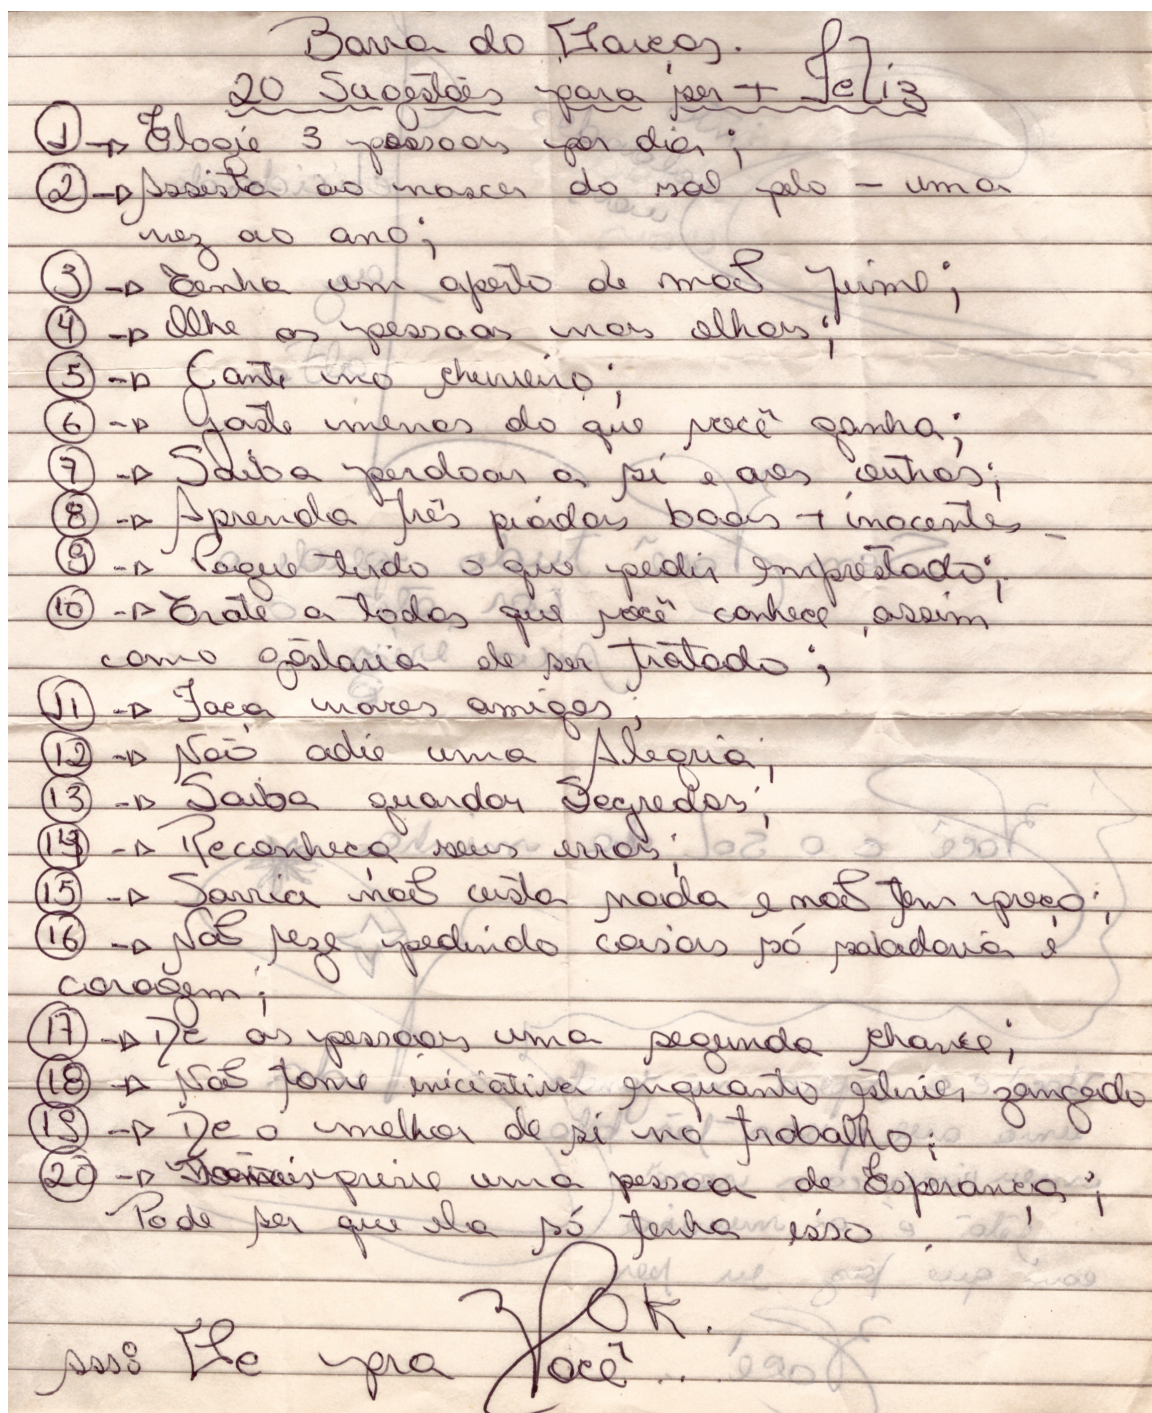 Barra do Garças.
20 Sugestões para ser + Feliz
1 → Elogie 3 pessoas por dia;
2 → Assista ao nascer do sol pelo - uma
vez ao ano;
3 → Tenha um aperto de maõ firme;
4 → Olhe as pessoas nos olhos;
5 → Cante no chuveiro;
6 → Gaste menos do que você ganha;
7 → Saiba perdoar a si e aos outros;
8 → Aprenda três piadas boas + inocentes
9 → Pague tudo o que pedir emprestado;
10 → Trate a todos que você conhece, assim
como gostaria de ser tratado;
11 → Faça novos amigos;
12 → Naõ adie uma Alegria;
13 → Saiba guardar Segredos;
14 → Reconheça seus erros;
15 → Sorria naõ custa nada e naõ tem preço;
16 → Naõ reze pedindo coisas só sabedoria e
coragem;
17 → De as pessoas uma segunda chance;
18 → Naõ tome iniciativa enquanto estiver zangado
19 → De o melhor de si no trabalho;
20 → prive uma pessoa de Esperança;
Pode ser que ela só tenha isso.
OK.
pra Você...